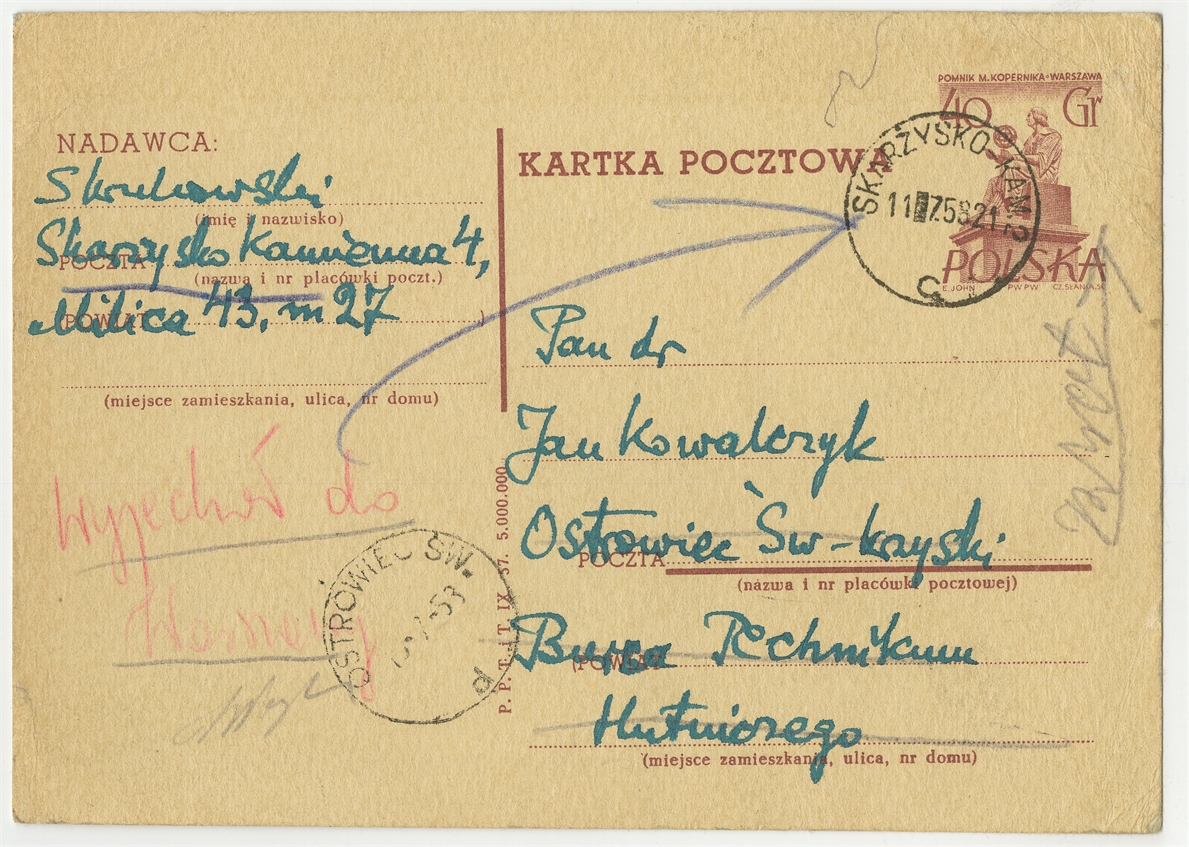 POMNIK M. KOPERNIKA-WARSZAWA
40 Gr
POLSKA
E. JOHN PW PW CZ. SŁANIA. SC
SKARŻYSKO-KAM. 2
11 7.58 21
C
NADAWCA:
(imię i nazwisko)
Skarzysko Kamienna 4,
POCZTA
(nazwa i nr placówki poczt.)
Milica 43, m 27
(POWIAT )
(miejsce zamieszkania, ulica, nr domu)
KARTKA POCZTOWA
Pan dr
Jan Kowalczyk
Ostrowiec Św-krzyski
POCZTA
(nazwa i nr placówki pocztowej)
Bursa Technikum
(POWIAT
Hutniczego
(miejsce zamieszkania, ulica, nr domu)
P. P. T. i T. IX 57. 5.000.000
zwrot
Wyjechał do
Warszawy
OSTROWIEC ŚW.
d